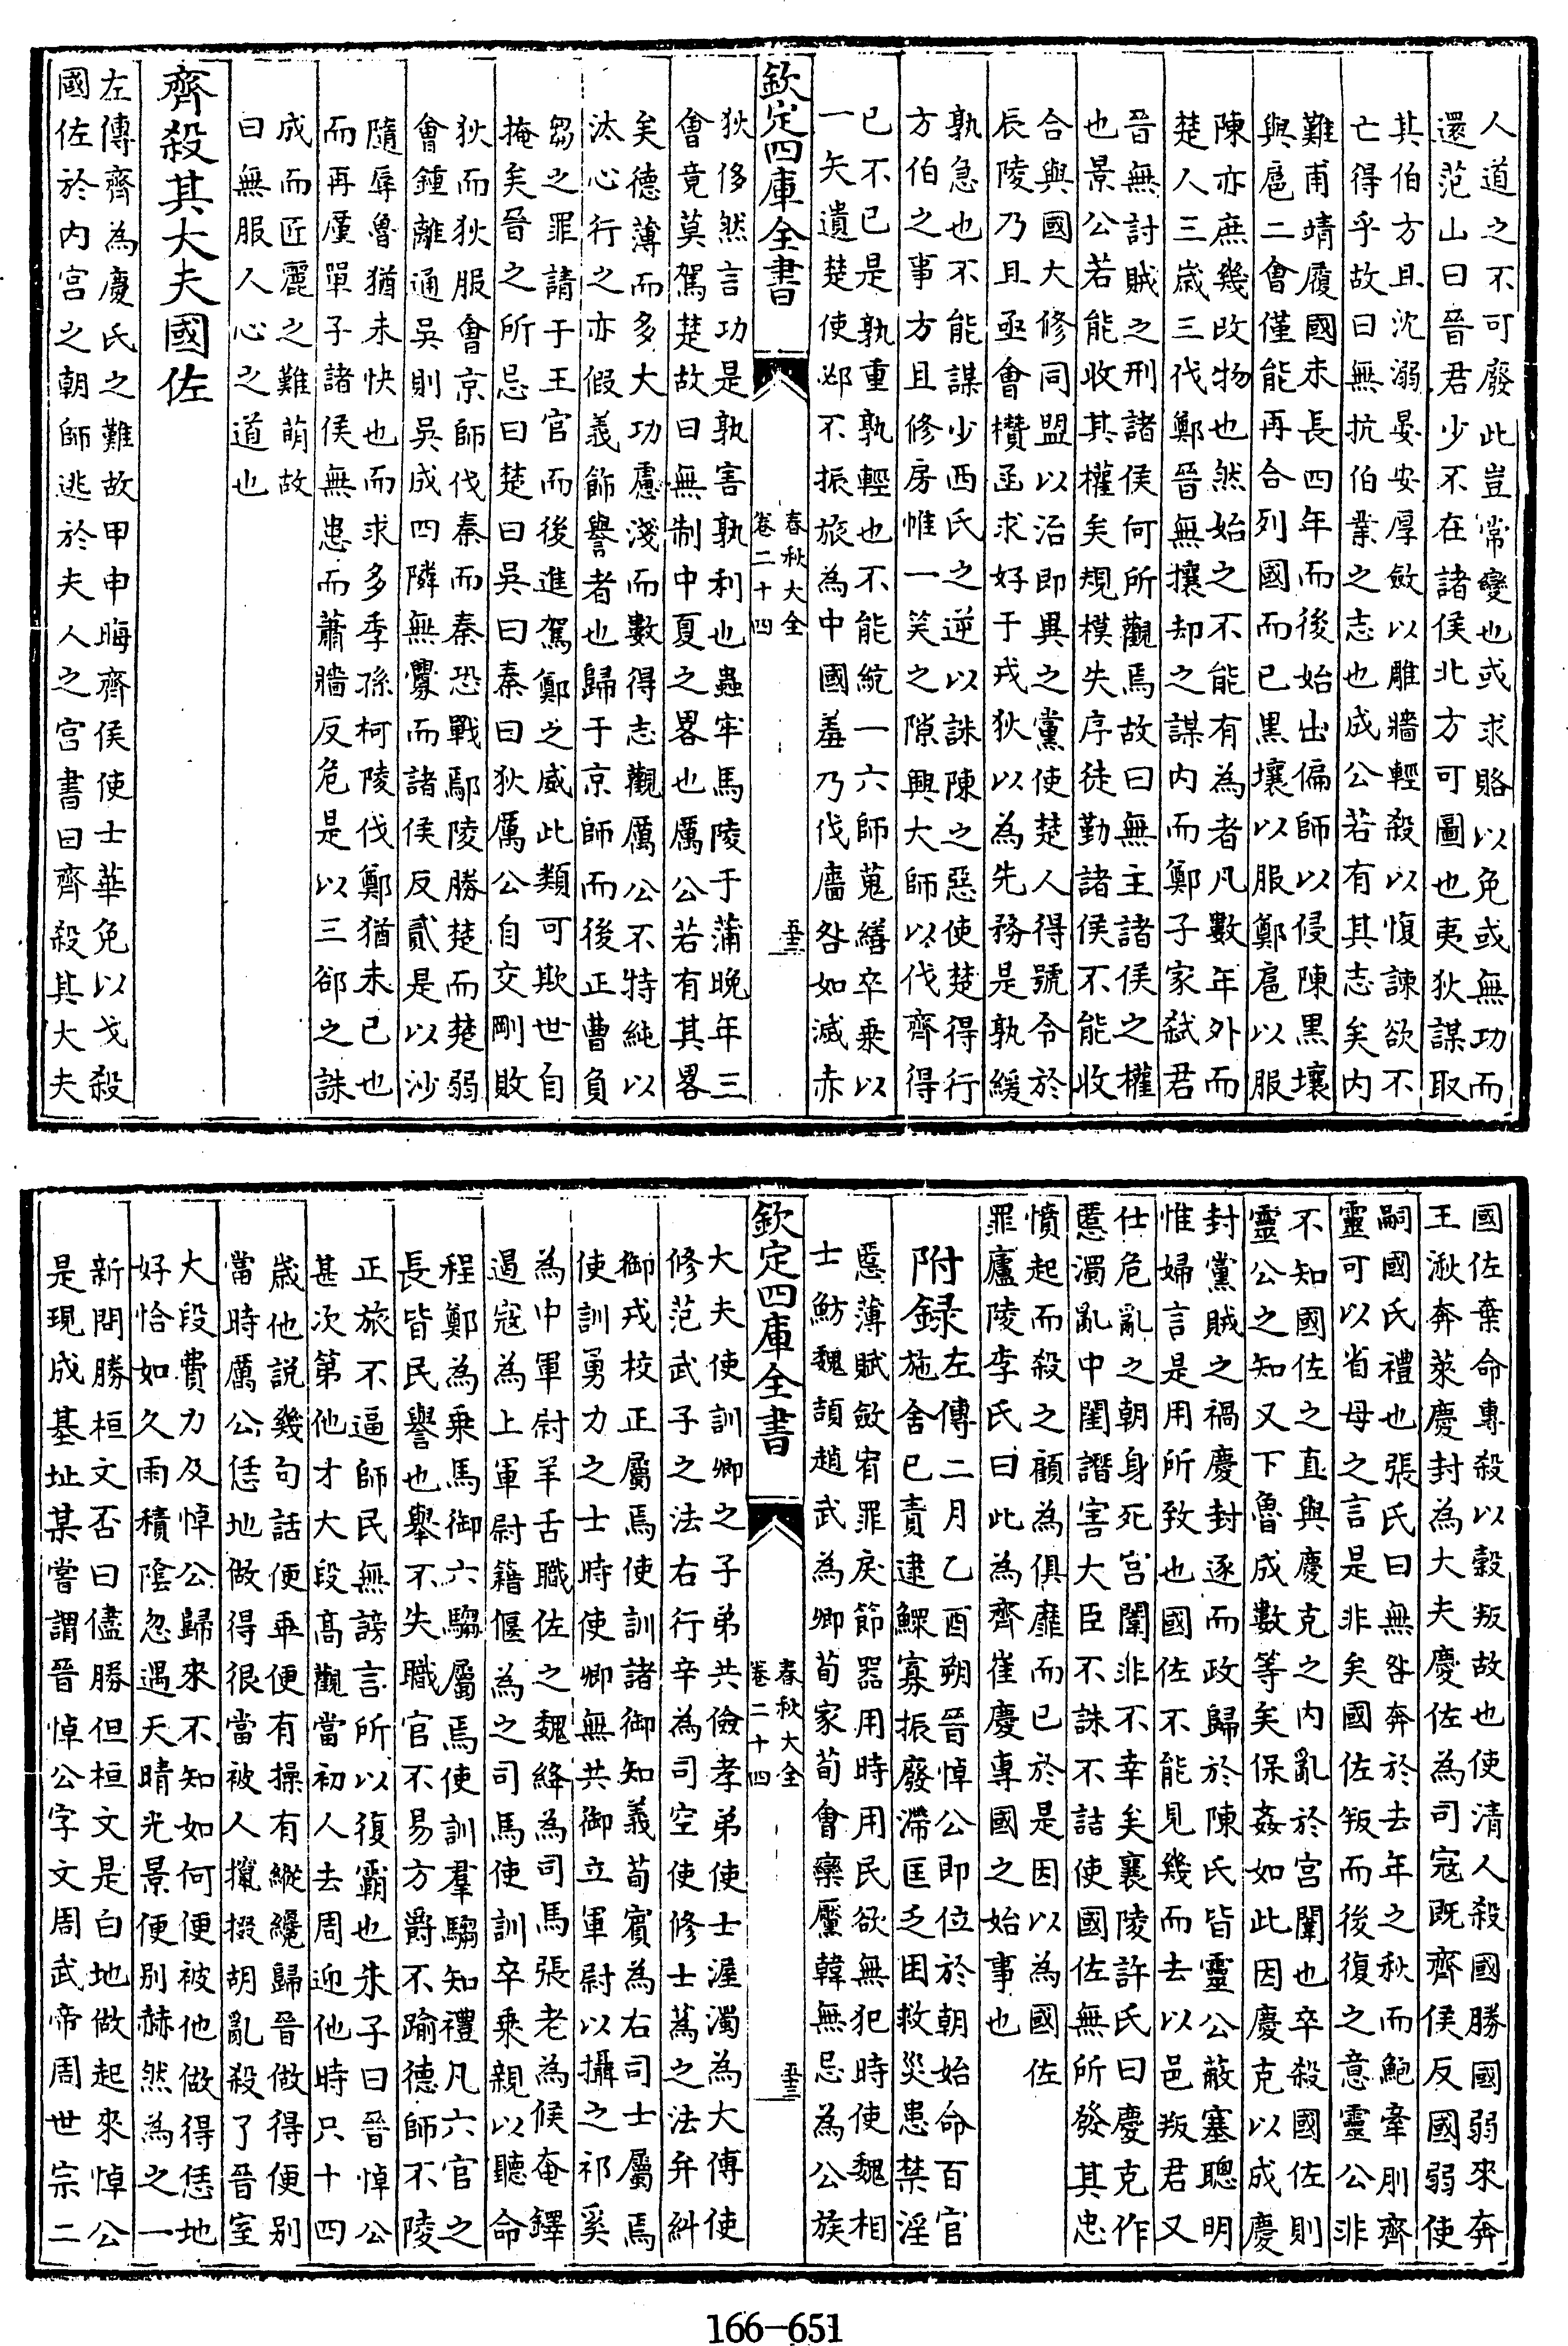 人道之不可廢此豈常變也或求賂以免或無功而
還范山曰晉君少不在諸侯北方可圖也夷狄謀取
其伯方且沈溺晏安厚斂以雕牆輕殺以愎諫欲不
亡得乎故曰無抗伯業之志也成公若有其志矣内
難甫靖履國未長四年而後始出偏師以侵陳黑壤
與扈二會僅能再合列國而已黒壤以服鄭扈以服
陳亦庶幾攺物也然始之不能有為者凡數年外而
楚人三歳三伐鄭晉無攘却之謀内而鄭子家弑君
晉無討賊之刑諸侯何所觀焉故曰無主諸侯之權
也景公若能收其權矣規模失序徒勤諸侯不能收
合與國大修同盟以治即異之黨使楚人得號令於
辰陵乃且亟會欑函求好于戎狄以為先務是孰緩
孰急也不能謀少西氏之逆以誅陳之惡使楚得行
方伯之事方且修房帷一笑之隙興大師以伐齊得
已不已是孰重孰輕也不能統一六師蒐繕卒乗以
一矢遺楚使邲不振旅為中國羞乃伐廧咎如滅赤
欽定四庫全書
春秋大全
卷二十四
五三
狄侈然言功是孰害孰利也蟲牢馬陵于蒲晚年三
會竟莫駕楚故曰無制中夏之畧也厲公若有其畧
矣德薄而多大功慮淺而數得志觀厲公不特純以
汰心行之亦假義飾譽者也歸于京師而後正曹負
芻之罪請于王官而後進駕鄭之威此類可欺世自
掩矣晉之所忌曰楚曰吳曰秦曰狄厲公自交剛敗
狄而狄服會京師伐秦而秦恐戰鄢陵勝楚而楚弱
會鍾離通吳則吳成四隣無釁而諸侯反貳是以沙
隨辱魯猶未快也而求多季孫柯陵伐鄭猶未已也
而再廑單子諸侯無患而蕭牆反危是以三郤之誅
成而匠麗之難萌故
曰無服人心之道也
齊殺其大夫國佐
左傳齊為慶氏之難故甲申晦齊侯使士華免以戈殺
國佐於内宫之朝師逃於夫人之宫書曰齊殺其大夫
國佐棄命專殺以榖叛故也使清人殺國勝國弱來奔
王湫奔萊慶封為大夫慶佐為司寇既齊侯反國弱使
嗣國氏禮也張氏曰無咎奔於去年之秋而鮑牽刖齊
靈可以省母之言是非矣國佐叛而後復之意靈公非
不知國佐之直與慶克之内亂於宫闈也卒殺國佐則
靈公之知又下魯成數等矣保姦如此因慶克以成慶
封黨賊之禍慶封逐而政歸於陳氏皆靈公蔽塞聰明
惟婦言是用所致也國佐不能見幾而去以邑叛君又
仕危亂之朝身死宫闈非不幸矣襄陵許氏曰慶克作
慝濁亂中閨譖害大臣不誅不詰使國佐無所發其忠
憤起而殺之顧為俱靡而已於是因以為國佐
罪廬陵李氏曰此為齊崔慶專國之始事也
附録左傳二月乙酉朔晉悼公即位於朝始命百官
施舍已責逮鰥寡振廢滯匡乏困救災患禁淫
慝薄賦斂宥罪戾節器用時用民欲無犯時使魏相
士魴魏頡趙武為卿荀家荀會欒黶韓無忌為公族
欽定四庫全書
春秋大全
卷二十四
五三
大夫使訓卿之子弟共儉孝弟使士渥濁為大傅使
修范武子之法右行辛為司空使修士蒍之法弁糾
御戎校正屬焉使訓諸御知義荀賔為右司士屬焉
使訓勇力之士時使卿無共御立軍尉以攝之祁奚
為中軍尉羊舌職佐之魏絳為司馬張老為候奄鐸
遏寇為上軍尉籍偃為之司馬使訓卒乗親以聽命
程鄭為乗馬御六騶屬焉使訓羣騶知禮凡六官之
長皆民譽也舉不失職官不易方爵不踰德師不陵
正旅不逼師民無謗言所以復霸也朱子曰晉悼公
甚次第他才大段髙觀當初人去周迎他時只十四
歳他説幾句話便乖便有操有縱纔歸晉做得便别
當時厲公恁地做得很當被人攛掇胡亂殺了晉室
大段費力及悼公歸來不知如何便被他做得恁地
好恰如久雨積陰忽遇天晴光景便别赫然為之一
新問勝桓文否曰儘勝但桓文是白地做起來悼公
是現成基址某嘗謂晉悼公字文周武帝周世宗二
166-651